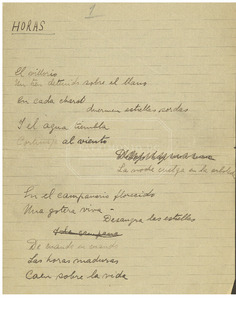 1
HORAS
El villorio
Un tren detenido sobre el llano
En cada charol
duermen estrellas sordas
Y el agua tiembla
Cortinaje al viento
La noche cuelga en la arboleda
En el campanario florecido
Una gotera viva -
Desangra las estrellas
De cuando en cuando
Las horas maduras
Caen sobre la vida